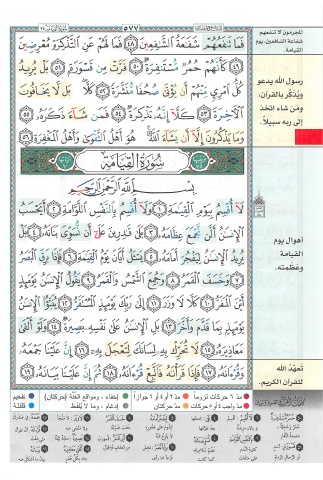 ٥٧٧
فَمَا تَنفَعُهُمْ شَفَٰعَةُ ٱلشَّٰفِعِينَ ٤٨ فَمَا لَهُمْ عَنِ ٱلتَّذْكِرَةِ مُعْرِضِينَ
٤٩ كَأَنَّهُمْ حُمُرٌ مُّسْتَنفِرَةٌ ٥٠ فَرَّتْ مِن قَسْوَرَةٍ ٥١ بَلْ يُرِيدُ
كُلُّ ٱمْرِئٍ مِّنْهُمْ أَن يُؤْتَىٰ صُحُفًا مُّنَشَّرَةً ٥٢ كَلَّا بَل لَّا يَخَافُونَ
ٱلْءَاخِرَةَ ٥٣ كَلَّآ إِنَّهُۥ تَذْكِرَةٌ ٥٤ فَمَن شَآءَ ذَكَرَهُۥ ٥٥
وَمَا يَذْكُرُونَ إِلَّآ أَن يَشَآءَ ٱللَّهُ هُوَ أَهْلُ ٱلتَّقْوَىٰ وَأَهْلُ ٱلْمَغْفِرَةِ ٥٦
سُورَةُ ٱلْقِيَامَةِ
بِسْمِ ٱللَّهِ ٱلرَّحْمَٰنِ ٱلرَّحِيمِ
لَآ أُقْسِمُ بِيَوْمِ ٱلْقِيَٰمَةِ ١ وَلَآ أُقْسِمُ بِٱلنَّفْسِ ٱللَّوَّامَةِ ٢ أَيَحْسَبُ
ٱلْإِنسَٰنُ أَلَّن نَّجْمَعَ عِظَامَهُۥ ٣ بَلَىٰ قَٰدِرِينَ عَلَىٰٓ أَن نُّسَوِّىَ بَنَانَهُۥ ٤ بَلْ
يُرِيدُ ٱلْإِنسَٰنُ لِيَفْجُرَ أَمَامَهُۥ ٥ يَسْـَٔلُ أَيَّانَ يَوْمُ ٱلْقِيَٰمَةِ ٦ فَإِذَا بَرِقَ ٱلْبَصَرُ
٧ وَخَسَفَ ٱلْقَمَرُ ٨ وَجُمِعَ ٱلشَّمْسُ وَٱلْقَمَرُ ٩ يَقُولُ ٱلْإِنسَٰنُ يَوْمَئِذٍ
أَيْنَ ٱلْمَفَرُّ ١٠ كَلَّا لَا وَزَرَ ١١ إِلَىٰ رَبِّكَ يَوْمَئِذٍ ٱلْمُسْتَقَرُّ ١٢ يُنَبَّؤُا۟ ٱلْإِنسَٰنُ
يَوْمَئِذٍۭ بِمَا قَدَّمَ وَأَخَّرَ ١٣ بَلِ ٱلْإِنسَٰنُ عَلَىٰ نَفْسِهِۦ بَصِيرَةٌ ١٤ وَلَوْ أَلْقَىٰ
مَعَاذِيرَهُۥ ١٥ لَا تُحَرِّكْ بِهِۦ لِسَانَكَ لِتَعْجَلَ بِهِۦٓ ١٦ إِنَّ عَلَيْنَا جَمْعَهُۥ
وَقُرْءَانَهُۥ ١٧ فَإِذَا قَرَأْنَٰهُ فَٱتَّبِعْ قُرْءَانَهُۥ ١٨ ثُمَّ إِنَّ عَلَيْنَا بَيَانَهُۥ ١٩
المجرمون لا تنفعهم
شفاعة الشافعين، يوم
القيامة.
رسول الله يدعو
ويُذكّر بالقرآن،
ومَن شاء اتخذ
إلى ربه سبيلاً.
أهوال يوم
القيامة
وعظمته.
تَعهّدُ الله
للقرآن الكريم.
مدّ ٦ حركات لزوماً
مدّ ٢ أو ٤ أو ٦ جوازاً
إخفاء، ومواقع الغُنَّة (حركتان)
تفخيم
مدّ واجب ٤ أو ٥ حركات
مدّ حركتان
إدغام، وما لا يُلفظ
قلقلة